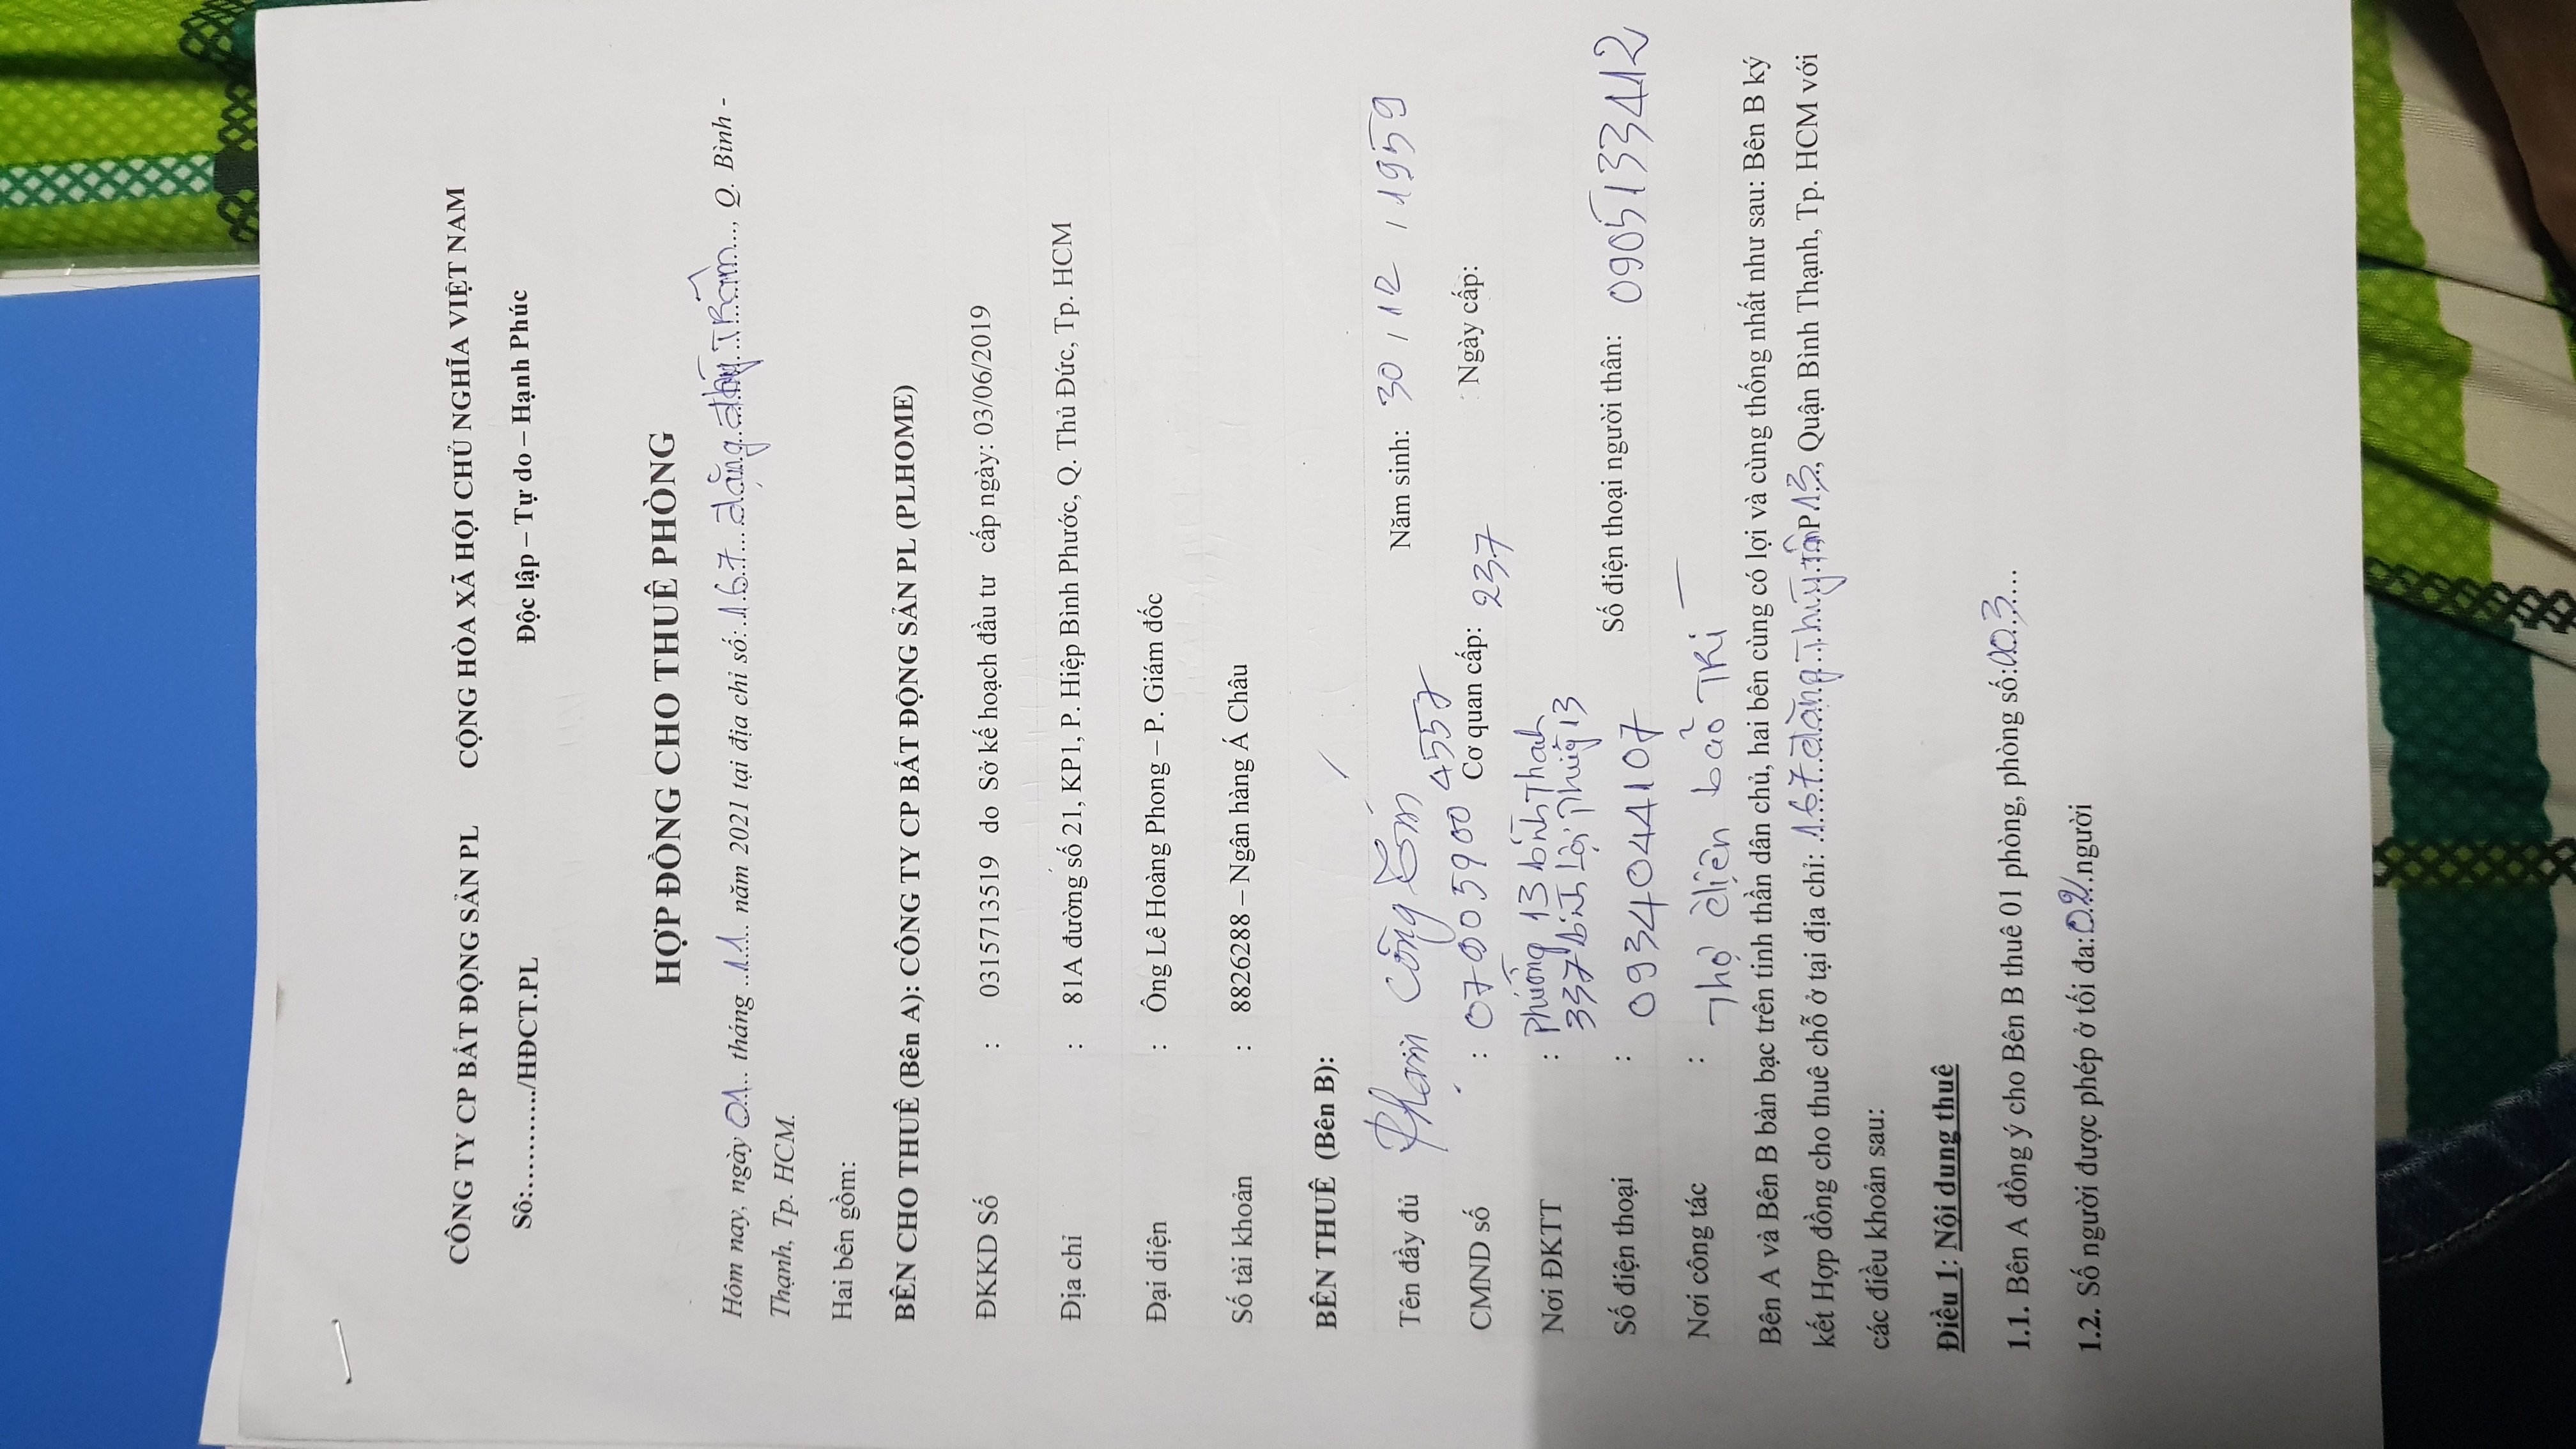 CÔNG TY CP BẤT ĐỘNG SẢN PL CỘNG HÒA XÃ HỘI CHỦ NGHĨA VIỆT NAM
Số:…………/HĐCT.PL Độc lập – Tự do – Hạnh Phúc
HỢP ĐỒNG CHO THUÊ PHÒNG
Hôm nay, ngày 01 tháng 11 năm 2021 tại địa chỉ số: 167 Đặng Thùy Trâm, Q. Bình -
Thạnh, Tp. HCM.
Hai bên gồm:
BÊN CHO THUÊ (Bên A): CÔNG TY CP BẤT ĐỘNG SẢN PL (PLHOME)
ĐKKD Số : 0315713519 do Sở kế hoạch đầu tư cấp ngày: 03/06/2019
Địa chỉ : 81A đường số 21, KP1, P. Hiệp Bình Phước, Q. Thủ Đức, Tp. HCM
Đại diện : Ông Lê Hoàng Phong – P. Giám đốc
Số tài khoản : 8826288 – Ngân hàng Á Châu
BÊN THUÊ (Bên B):
Tên đầy đủ : Phạm Công Năm sinh: 30 / 12 / 1959
CMND số : 079059004557 Cơ quan cấp: 237 Ngày cấp:
Nơi ĐKTT : Phường 13 bình Thạnh
337 Lợi 13
Số điện thoại : 0934044107 Số điện thoại người thân: 0905133412
Nơi công tác : Thợ điện bảo Trì
Bên A và Bên B bàn bạc trên tinh thần dân chủ, hai bên cùng có lợi và cùng thống nhất như sau: Bên B ký
kết Hợp đồng cho thuê chỗ ở tại địa chỉ: 167 Đặng Thùy P13, Quận Bình Thạnh, Tp. HCM với
các điều khoản sau:
Điều 1: Nội dung thuê
1.1. Bên A đồng ý cho Bên B thuê 01 phòng, phòng số:
1.2. Số người được phép ở tối đa: 02 người